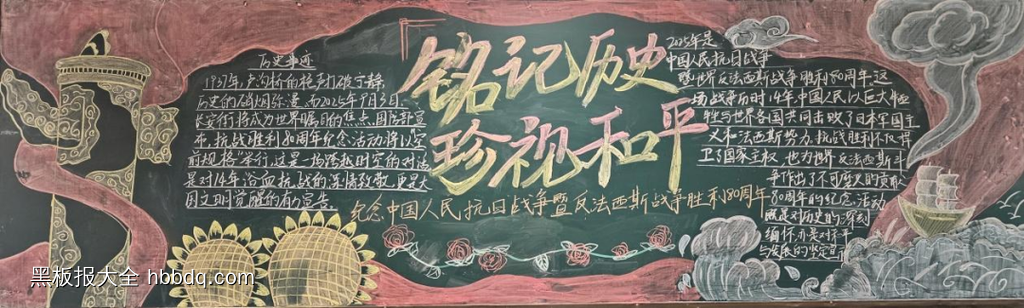 历史事迹
1937年,卢沟桥的枪声打破宁静
历史的硝烟弥漫,而2025年9月3日,
长安街将成为世界瞩目的焦点,国防部宣
布,抗战胜利80周年纪念活动将以空
前规格举行,这是一场跨越时空的对话
是对14年浴血抗战的深情致敬,更是大
国文明觉醒的有力宣告
铭记历史
珍视和平
纪念中国人民抗日战争暨反法西斯战争胜利80周年
2025年是
中国人民抗日战争
暨世界反法西斯战争胜利80周年,这
场战争历时14年,中国人民以巨大牺
牲与世界各国共同击败了日本军国主
义和法西斯势力,抗战胜利不仅捍
卫了国家主权,也为世界反法西斯斗
争作出了不可磨灭的贡献
80周年的纪念活动
既是对历史的深刻
缅怀,亦是对和平
与发展的坚定
黑板报大全 hbbdq.com